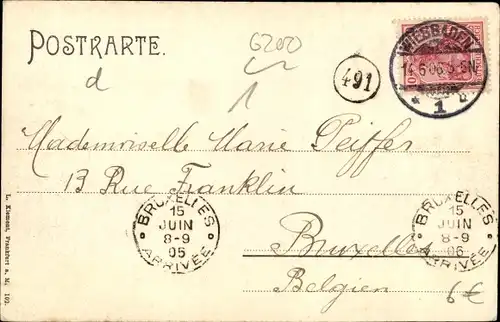 POSTKARTE.
d
6200
1
491
WIESBADEN
14.6.06.
1
Mademoiselle Marie Peiffer
13 Rue Franklin
Bruxelles
Belgien
BRUXELLES
15
JUIN
8-9
05
ARRIVÉE
BRUXELLES
15
JUIN
8-9
06
ARRIVÉE
6€
L. Klement, Frankfurt a. M. 102.